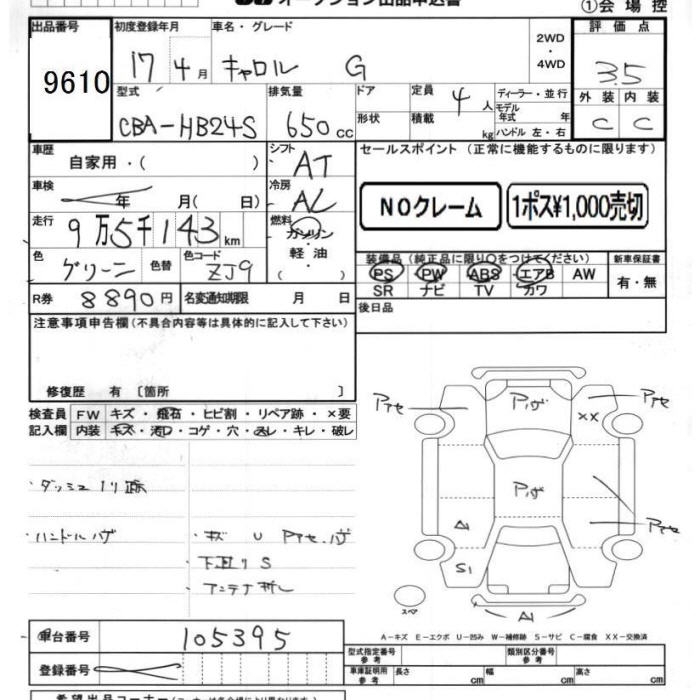 オークション出品申込書
①会場控
出品番号 初度登録年月 車名・グレード 2WD・4WD 評価点
9610 17年 4月 キャロル G 3.5
型式 排気量 ドア 定員 4人 ディーラー・並行 外装 内装
CBA-HB24S 650cc 形状 積載 kg モデル年式 年 ハンドル 左・右 C C
車歴 自家用・( ) シフト AT セールスポイント (正常に機能するものに限ります)
車検 年 月( 日) 冷房 AC
NOクレーム 1ポス¥1,000売切
走行 9万5千143km 燃料 ガソリン・軽油・( )
色 グリーン 色替 色コード ZJ9
装備品 (純正品に限り○をつけてください) 新車保証書
PS PW ABS エアB AW 有・無
SR ナビ TV カワ
R券 8890円 名変通知期限 月 日
後日品
注意事項申告欄(不具合内容等は具体的に記入して下さい)
修復歴 有 〔箇所 〕
検査員記入欄 FW キズ・飛石・ヒビ割・リペア跡・×要
内装 キズ・汚レ・コゲ・穴・スレ・キレ・破レ
・ダッシュ ノリ跡
・ハンドルハゲ ・キズ U Pアセ、ハゲ
・下廻りS
・アンテナ折レ
Pアセ Pハゲ XX Pアセ
Pハゲ
A1 Pアセ
S1
スペア A1
A-キズ E-エクボ U-凹み W-補修跡 S-サビ C-腐食 XX-交換済
車台番号 105395
登録番号
型式指定番号 参考 類別区分番号 参考
車庫証明用 参考 長さ cm 幅 cm 高さ cm
希望出品コーナー